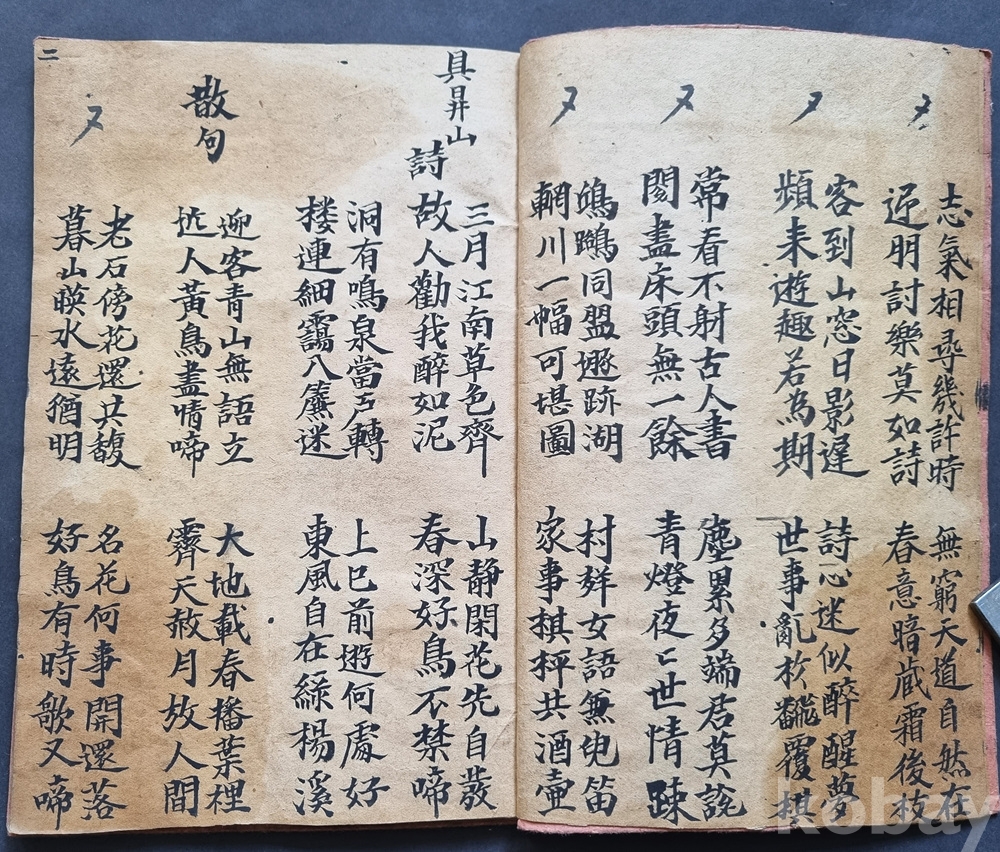 〃
志氣相尋幾許時
迎朋討樂莫如詩
無窮天道自然在
春意暗藏霜後枝
〃
客到山窓日影遲
頻来遊趣若為期
詩心迷似醉醒夢
世事亂於飜覆棋
〃
常看不射古人書
閱盡床頭無一餘
塵累多端君莫說
青燈夜〻世情踈
〃
鷗同盟遯跡湖
輞川一幅可堪圖
村女語無笛
家事棋枰共酒壺
具昇山
詩
三月江南草色齊
故人勸我醉如泥
山静閑花先自發
春深好鳥不禁啼
洞有鳴泉當户轉
楼連細靄入簾迷
上巳前遊何處好
東風自在綠楊溪
散句
迎客青山無語立
近人黃鳥盡情啼
大地載春播葉裡
霽天赦月放人間
〃
老石傍花還共馥
暮山暎水遠猶明
名花何事開還落
好鳥有時歌又啼
二
kobay